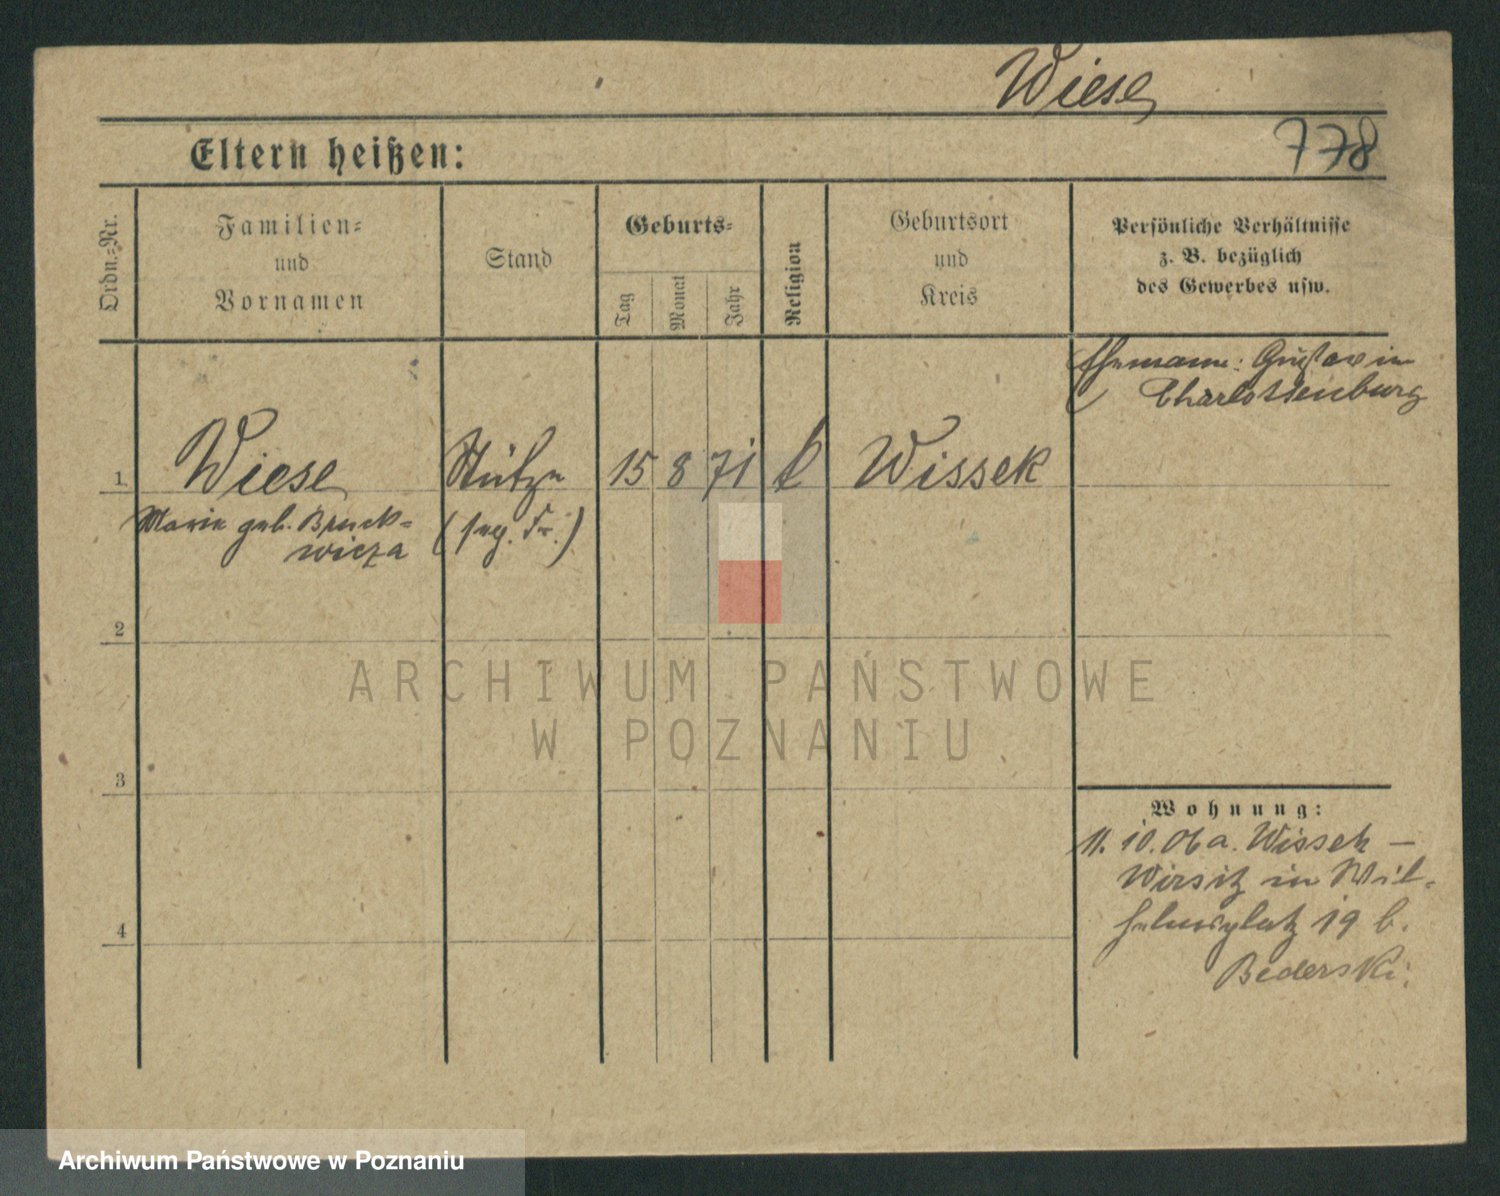 Wiese
778
Eltern heißen:
Ordn.-Nr.
Familien-
und
Vornamen
Stand
Geburts-
Tag
Monat
Jahr
Religion
Geburtsort
und
Kreis
Persönliche Verhältnisse
z. B. bezüglich
des Gewerbes usw.
Ehemann: Gustav in
Charlottenburg
1 Wiese Stütze 15 8 71 k Wissek
Marie geb. Bruck-
wicza
( Fr.)
2
ARCHIWUM PAŃSTWOWE
W POZNANIU
3
Wohnung:
11. 10. 06 a. Wissek –
Wirsitz in Wil-
helmsplatz 19 b.
Bederski.
4
Archiwum Państwowe w Poznaniu